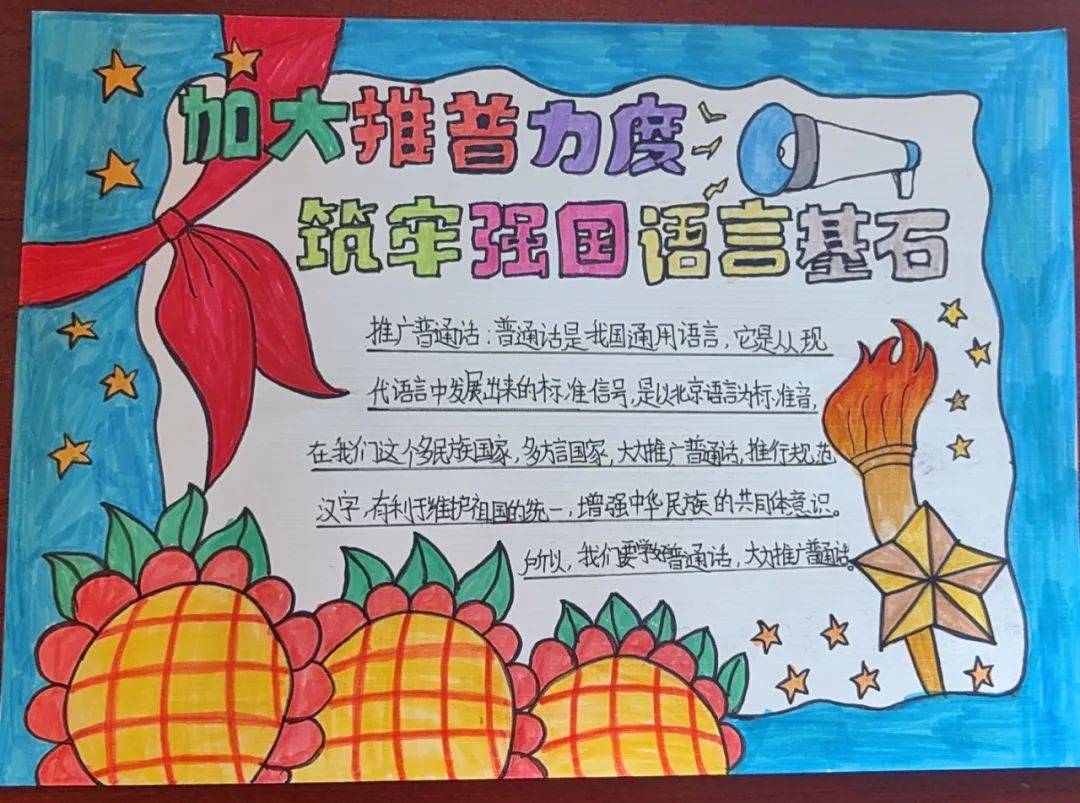 加大推普力度
筑牢强国语言基石
推广普通话：普通话是我国通用语言，它是从现
代语言中发展出来的标准信号，是以北京语言为标准音，
在我们这个多民族国家，多方言国家，大力推广普通话，推行规范
汉字，有利于维护祖国的统一，增强中华民族的共同体意识。
所以，我们要学好普通话，大力推广普通话。